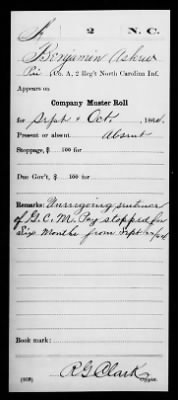 A 2 N.C.
Benjamin Askew
Pvt, Co. A, 2 Reg't North Carolina Inf.
Appears on
Company Muster Roll
for Sept & Oct, 1864.
Present or absent Absent
Stoppage, $ 100 for
Due Gov't, $ 100 for
Remarks: Undergoing sentence
of G.C.M. Pay stopped for
Six Months from Sept
Book mark:
R G Clark
(858) Copyist.